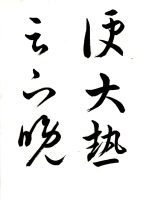 便大热
云不晚